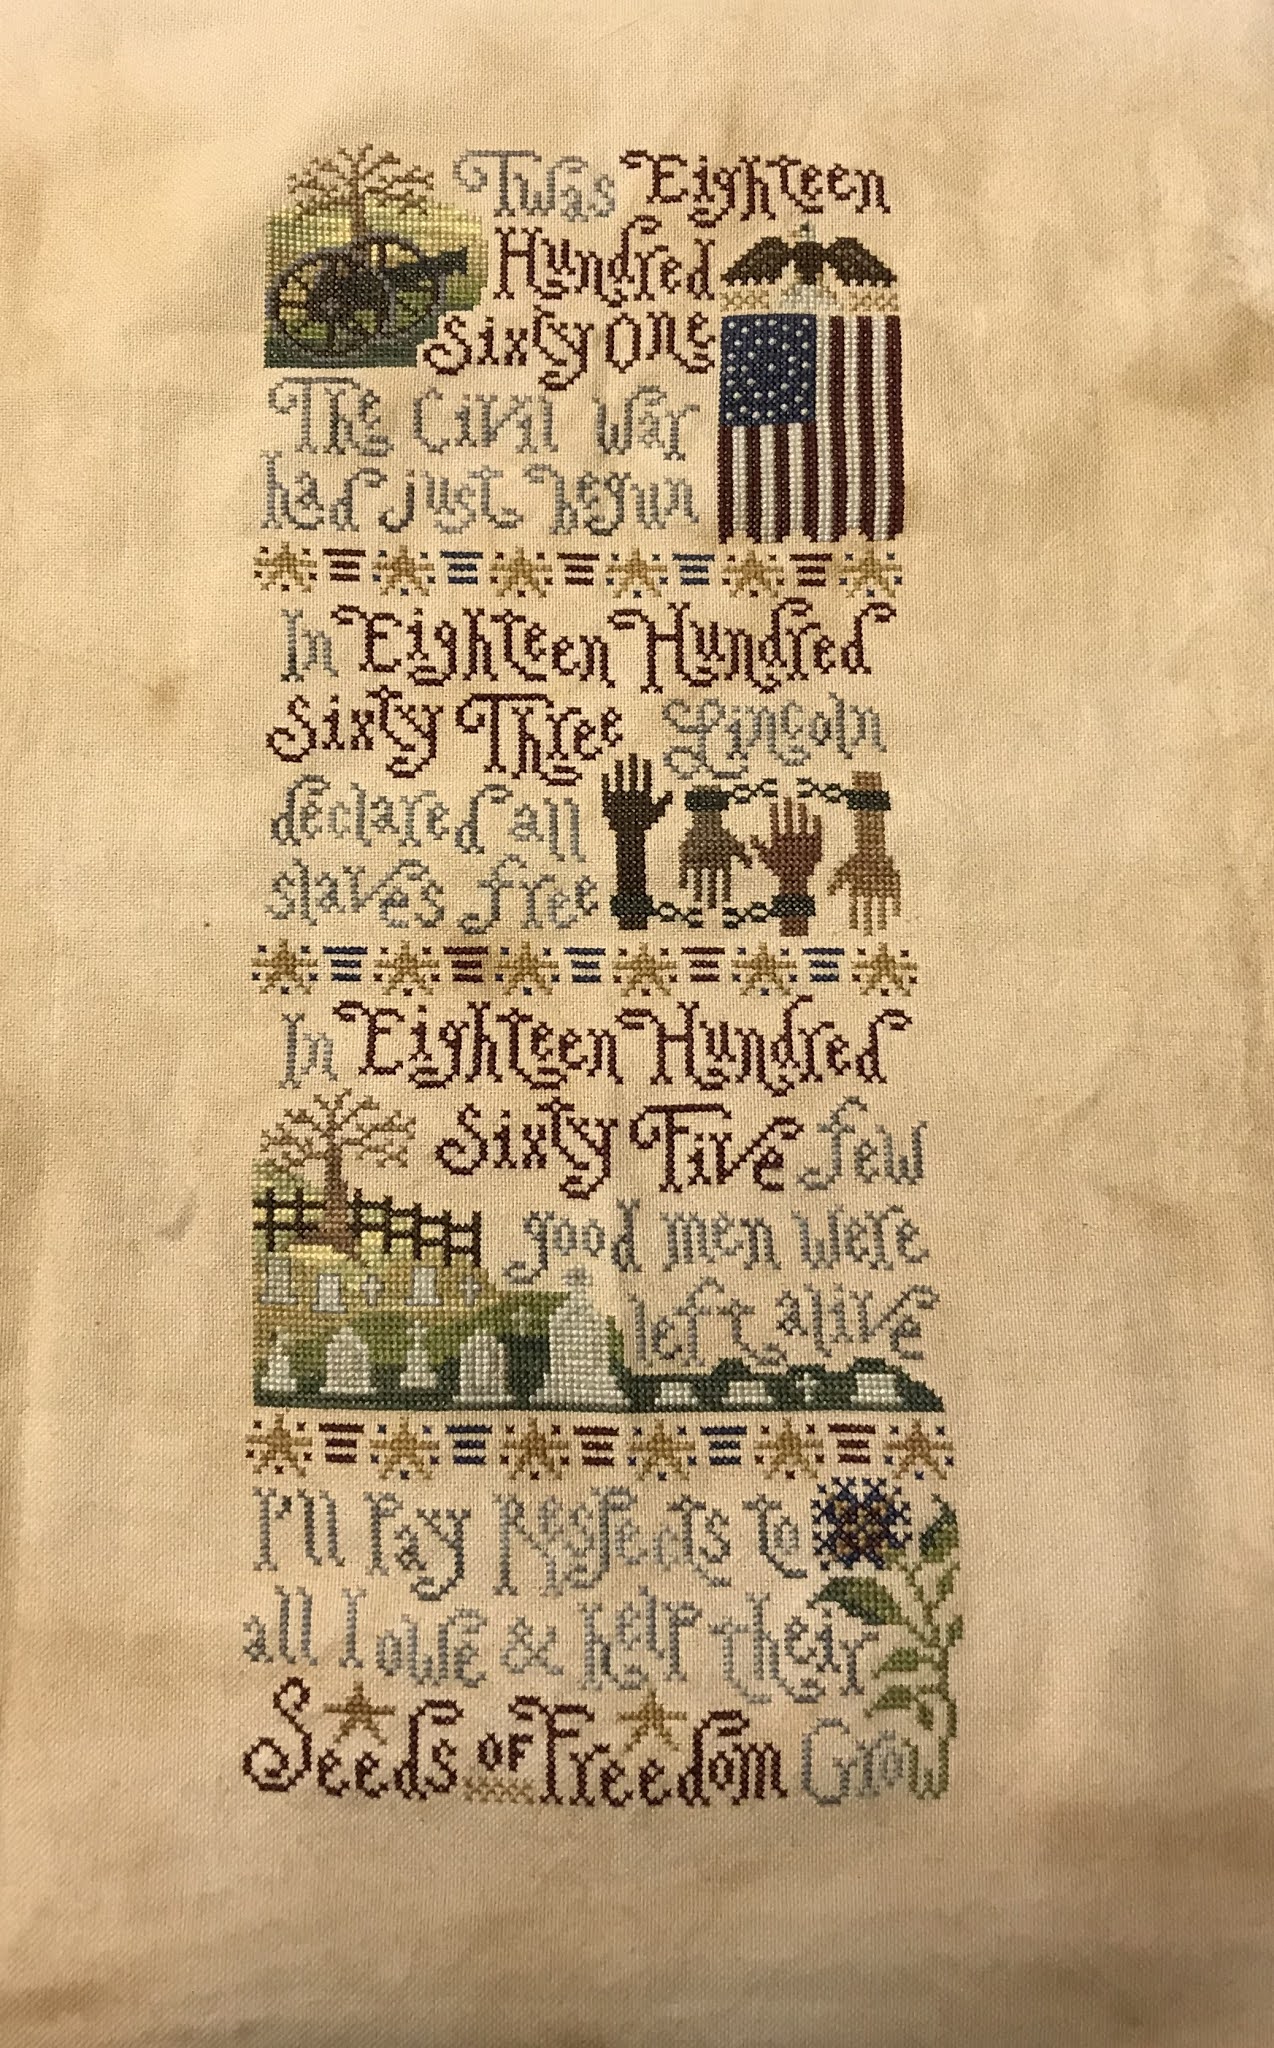 Twas Eighteen
Hundred
Sixty One
The Civil War
had just begun
In Eighteen Hundred
Sixty Three Lincoln
declared all
slaves free
In Eighteen Hundred
Sixty Five few
good men were
left alive
I'll Pay Respects to
all I owe & Help Their
Seeds of Freedom Grow